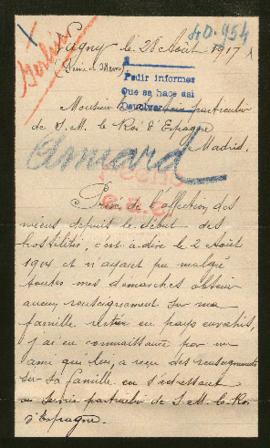 40.954
Jugny - le 28 Août 1917
Berlin
Pedir informes
Que se hace asi
Devolver
Monsieur particulier
de S. M. le Roi d'Espagne
Madrid.
Amiard
Privé de l'affection des
miens depuis le début des
hostilités, c'est-à-dire le 2 Août
1914 et n'ayant pu malgré
toutes mes démarches obtenir
aucun renseignement sur ma
famille restée en pays envahis,
j'ai eu connaissance par un
ami qui lui, a reçu des renseignements
sur sa famille en s'adressant
au Service particulier de S. M. le Roi
d'Espagne.